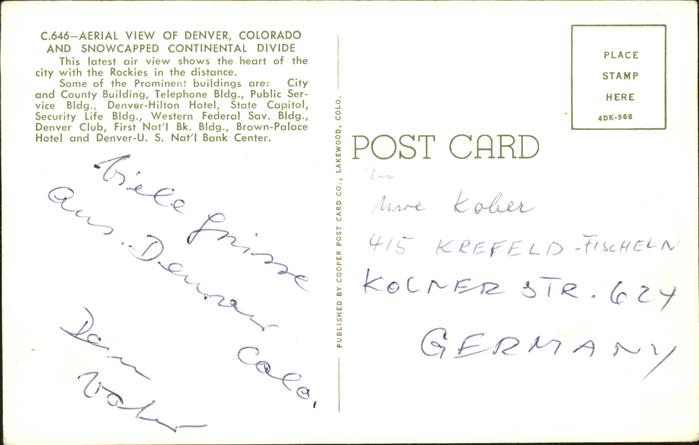 C.646—AERIAL VIEW OF DENVER, COLORADO
AND SNOWCAPPED CONTINENTAL DIVIDE
This latest air view shows the heart of the
city with the Rockies in the distance.
Some of the Prominent buildings are: City
and County Building, Telephone Bldg., Public Ser-
vice Bldg., Denver-Hilton Hotel, State Capitol,
Security Life Bldg., Western Federal Sav. Bldg.,
Denver Club, First Nat'l Bk. Bldg., Brown-Palace
Hotel and Denver-U. S. Nat'l Bank Center.
Viele Grüsse
aus Denver
Colo.
Dein
Vater
PUBLISHED BY COOPER POST CARD CO., LAKEWOOD, COLO.
PLACE
STAMP
HERE
4DK-968
POST CARD
Uwe Kober
415 KREFELD-FISCHELN
KOLNER STR. 624
GERMANY